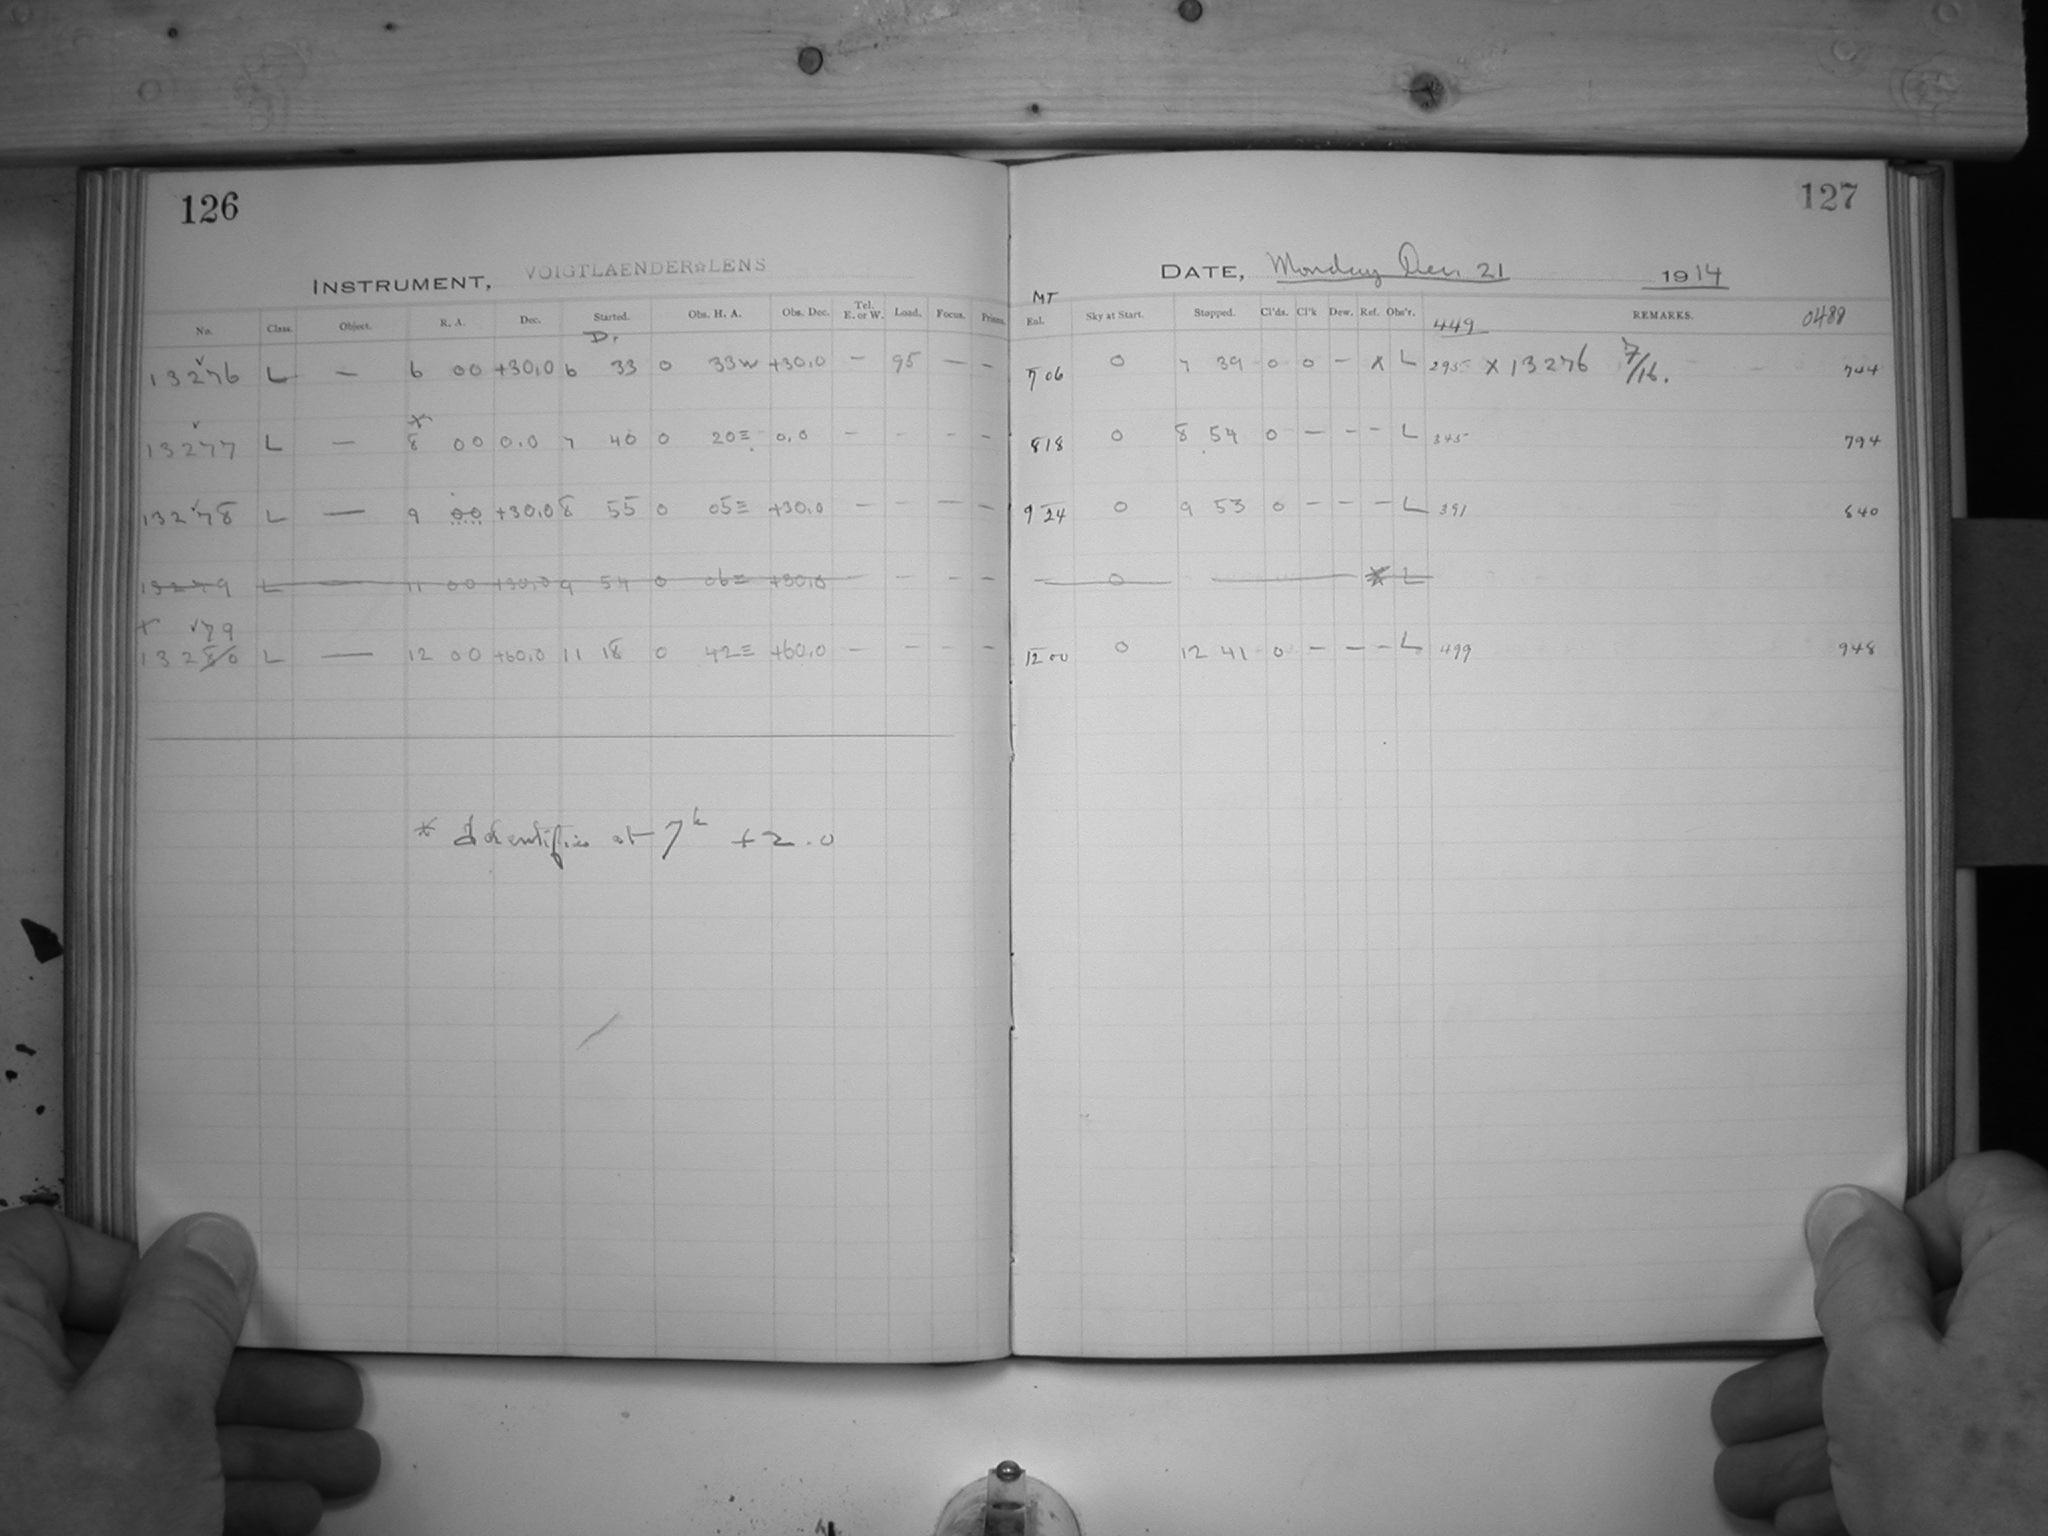 126
INSTRUMENT, VOIGTLAENDER☆LENS
No. Class. Object. R. A. Dec. Started. Obs. H. A. Obs. Dec. Tel. E. or W. Load. Focus. Prism.
13276 L — 6 00 +30,0 6 33 0 33w +30,0 — 95 — —
*
13277 L — 8 00 0.0 7 40 0 20E 0,0 — - - -
13278 L — 9 00 +30,0 8 55 0 05E +30,0 — - — -
13279 L — 11 00 +30,0 9 54 0 06E +30,0 - - -
x 79
13280 L — 12 00 +60,0 11 18 0 42E +60,0 — - - -
* Identifies at 7h +2.0
127
DATE, Monday Dec. 21 1914
MT
Eal. Sky at Start. Stopped. Cl'ds. Cl'k Dew. Ref. Obs'r. 449 REMARKS. 0488
7 06 0 7 39 0 0 — x L 295 x 13276 7/16. 744
8 18 0 8 54 0 — - - L 345 794
9 24 0 9 53 0 - - - L 391 840
— 0 — * L
12 00 0 12 41 0 - - - L 499 948